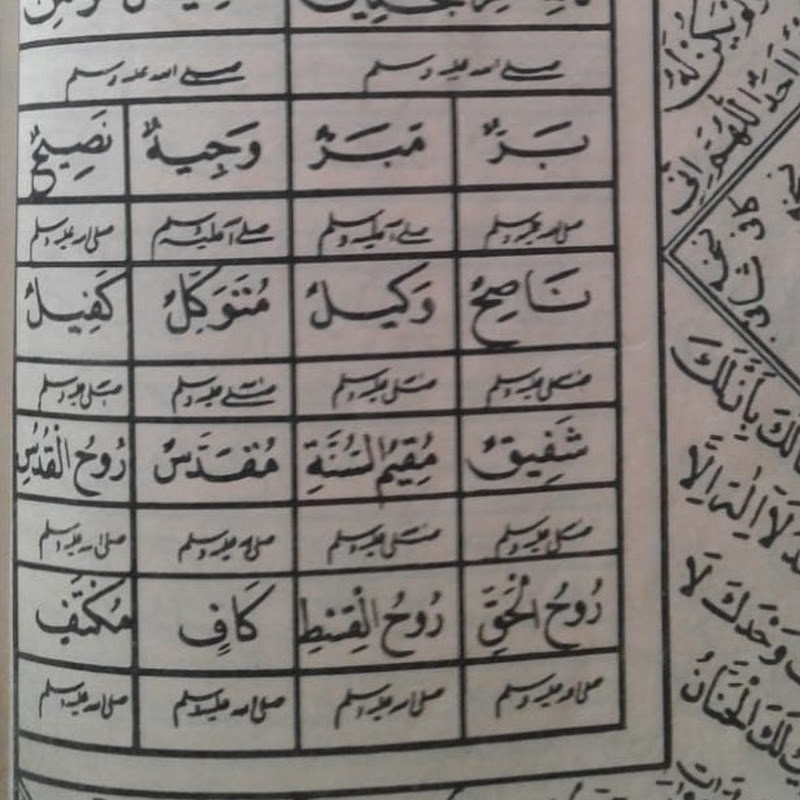 صلے اللہ علیہ وسلم صلے اللہ علیہ وسلم
بَرٌّ مَبَرٌّ وَجِيهٌ نَصِيحٌ
صلی اللہ علیہ وسلم صلے اللہ علیہ وسلم صلے اللہ علیہ وسلم صلی اللہ علیہ وسلم
نَاصِحٌ وَكِيلٌ مُتَوَكِّلٌ كَفِيلٌ
صلی اللہ علیہ وسلم صلی اللہ علیہ وسلم صلے اللہ علیہ وسلم صلی اللہ علیہ وسلم
شَفِيقٌ مُقِيمُ السُّنَّةِ مُقَدَّسٌ رُوحُ الْقُدُسِ
صلی اللہ علیہ وسلم صلی اللہ علیہ وسلم صلی اللہ علیہ وسلم صلی اللہ علیہ وسلم
رُوحُ الْحَقِّ رُوحُ الْقِسْطِ كَافٍ مُكْتَفٍ
صلی اللہ علیہ وسلم صلی اللہ علیہ وسلم صلی اللہ علیہ وسلم صلی اللہ علیہ وسلم
اَحَدٌ اَللّٰهُمَّ اِنِّي
بِاَنَّ لَكَ
لَا اِلٰهَ اِلَّا
وَحْدَكَ لَا